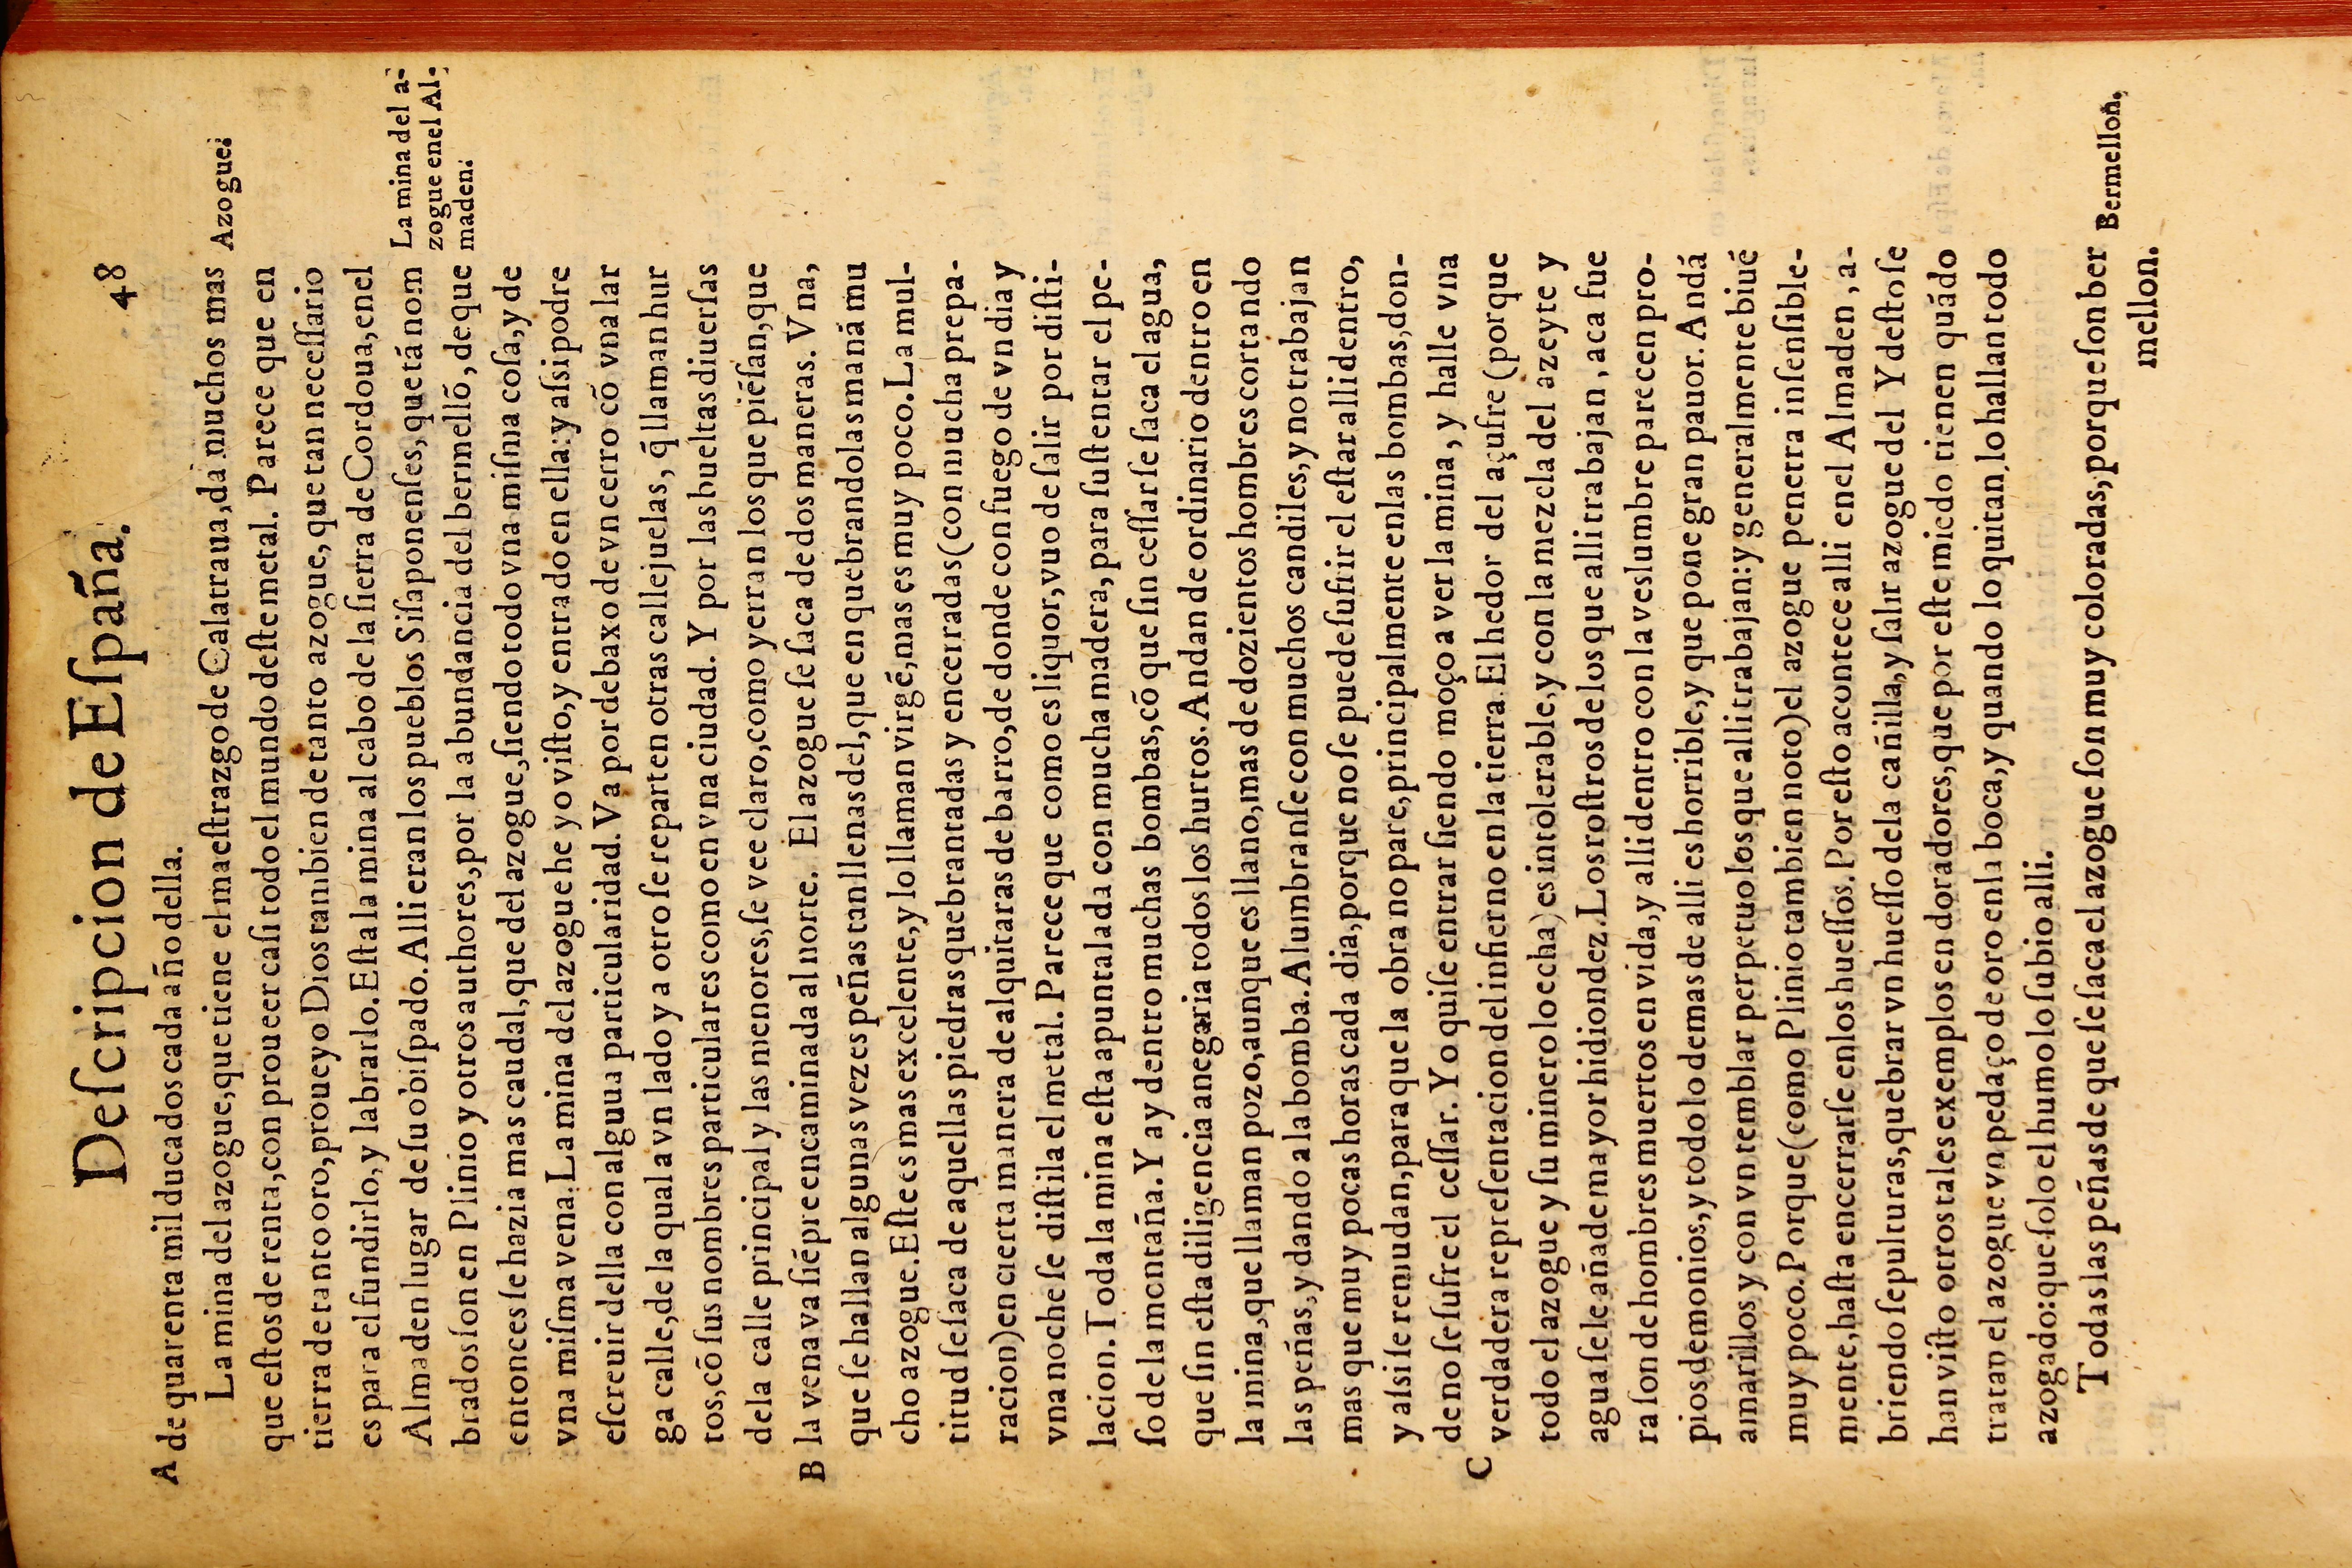 Deſcripcion de Eſpaña. 48
A de quarenta mil ducados cada año della.
La mina del azogue, que tiene el maeſtrazgo de Calatraua, da muchos mas
Azogue:
que eſtos de renta, con proueer caſi todo el mundo deſte metal. Parece que en
tierra de tanto oro, proueyo Dios tambien de tanto azogue, que tan neceſſario
es para el fundirlo, y labrarlo. Eſta la mina al cabo de la ſierra de Cordoua, en el
Almaden lugar de ſu obiſpado. Alli eran los pueblos Siſaponenſes, que tā nom
La mina del a-
zogue en el Al-
maden:
brados ſon en Plinio y otros authores, por la abundancia del bermellō, de que
entonces ſe hazia mas caudal, que del azogue, ſiendo todo vna miſma coſa, y de
vna miſma vena. La mina del azogue he yo viſto, y entrado en ella: y aſsi podre
eſcreuir della con alguua particularidad. Va por debaxo de vn cerro cō vna lar
ga calle, de la qual a vn lado y a otro ſe reparten otras callejuelas, q̃ llaman hur
tos, cō ſus nombres particulares como en vna ciudad. Y por las bueltas diuerſas
dela calle principal y las menores, ſe vee claro, como yerran los que piēſan, que
B la vena va ſiēpre encaminada al norte. El azogue ſe ſaca de dos maneras. Vna,
que ſe hallan algunas vezes peñas tan llenas del, que en quebrandolas manā mu
cho azogue. Eſte es mas excelente, y lo llaman virgē, mas es muy poco. La mul-
titud ſe ſaca de aquellas piedras quebrantadas y encerradas (con mucha prepa-
racion) en cierta manera de alquitaras de barro, de donde con fuego de vn dia y
vna noche ſe diſtila el metal. Parece que como es liquor, vuo de ſalir por diſti-
lacion. Toda la mina eſta apuntalada con mucha madera, para ſuſtentar el pe-
ſo de la montaña. Y ay dentro muchas bombas, cō que ſin ceſſar ſe ſaca el agua,
que ſin eſta diligencia anegaria todos los hurtos. Andan de ordinario dentro en
la mina, que llaman pozo, aunque es llano, mas de dozientos hombres cortando
las peñas, y dando a la bomba. Alumbranſe con muchos candiles, y no trabajan
mas que muy pocas horas cada dia, porque no ſe puede ſufrir el eſtar alli dentro,
y aſsi ſe remudan, para que la obra no pare, principalmente en las bombas, don-
de no ſe ſufre el ceſſar. Yo quiſe entrar ſiendo moço a ver la mina, y halle vna
C verdadera repreſentacion del infierno en la tierra. El hedor del açufre (porque
todo el azogue y ſu minero lo echa) es intolerable, y con la mezcla del azeyte y
agua ſe le añade mayor hidiondez. Los roſtros de los que alli trabajan, aca fue
ra ſon de hombres muertos en vida, y alli dentro con la veslumbre parecen pro-
pios demonios, y todo lo demas de alli es horrible, y que pone gran pauor. Andā
amarillos y con vn temblar perpetuo los que alli trabajan: y generalmente biuē
muy poco. Porque (como Plinio tambien noto) el azogue penetra inſenſible-
mente, haſta encerrarſe en los hueſſos. Por eſto acontece alli en el Almaden, a-
briendo ſepulturas, quebrar vn hueſſo dela cañilla, y ſalir azogue del Y deſto ſe
han viſto otros tales exemplos en doradores, que por eſte miedo tienen quādo
tratan el azogue vn pedaço de oro en la boca, y quando lo quitan, lo hallan todo
azogado: que ſolo el humo lo ſubio alli.
Todas las peñas de que ſe ſaca el azogue ſon muy coloradas, porque ſon ber
Bermellon,
mellon.